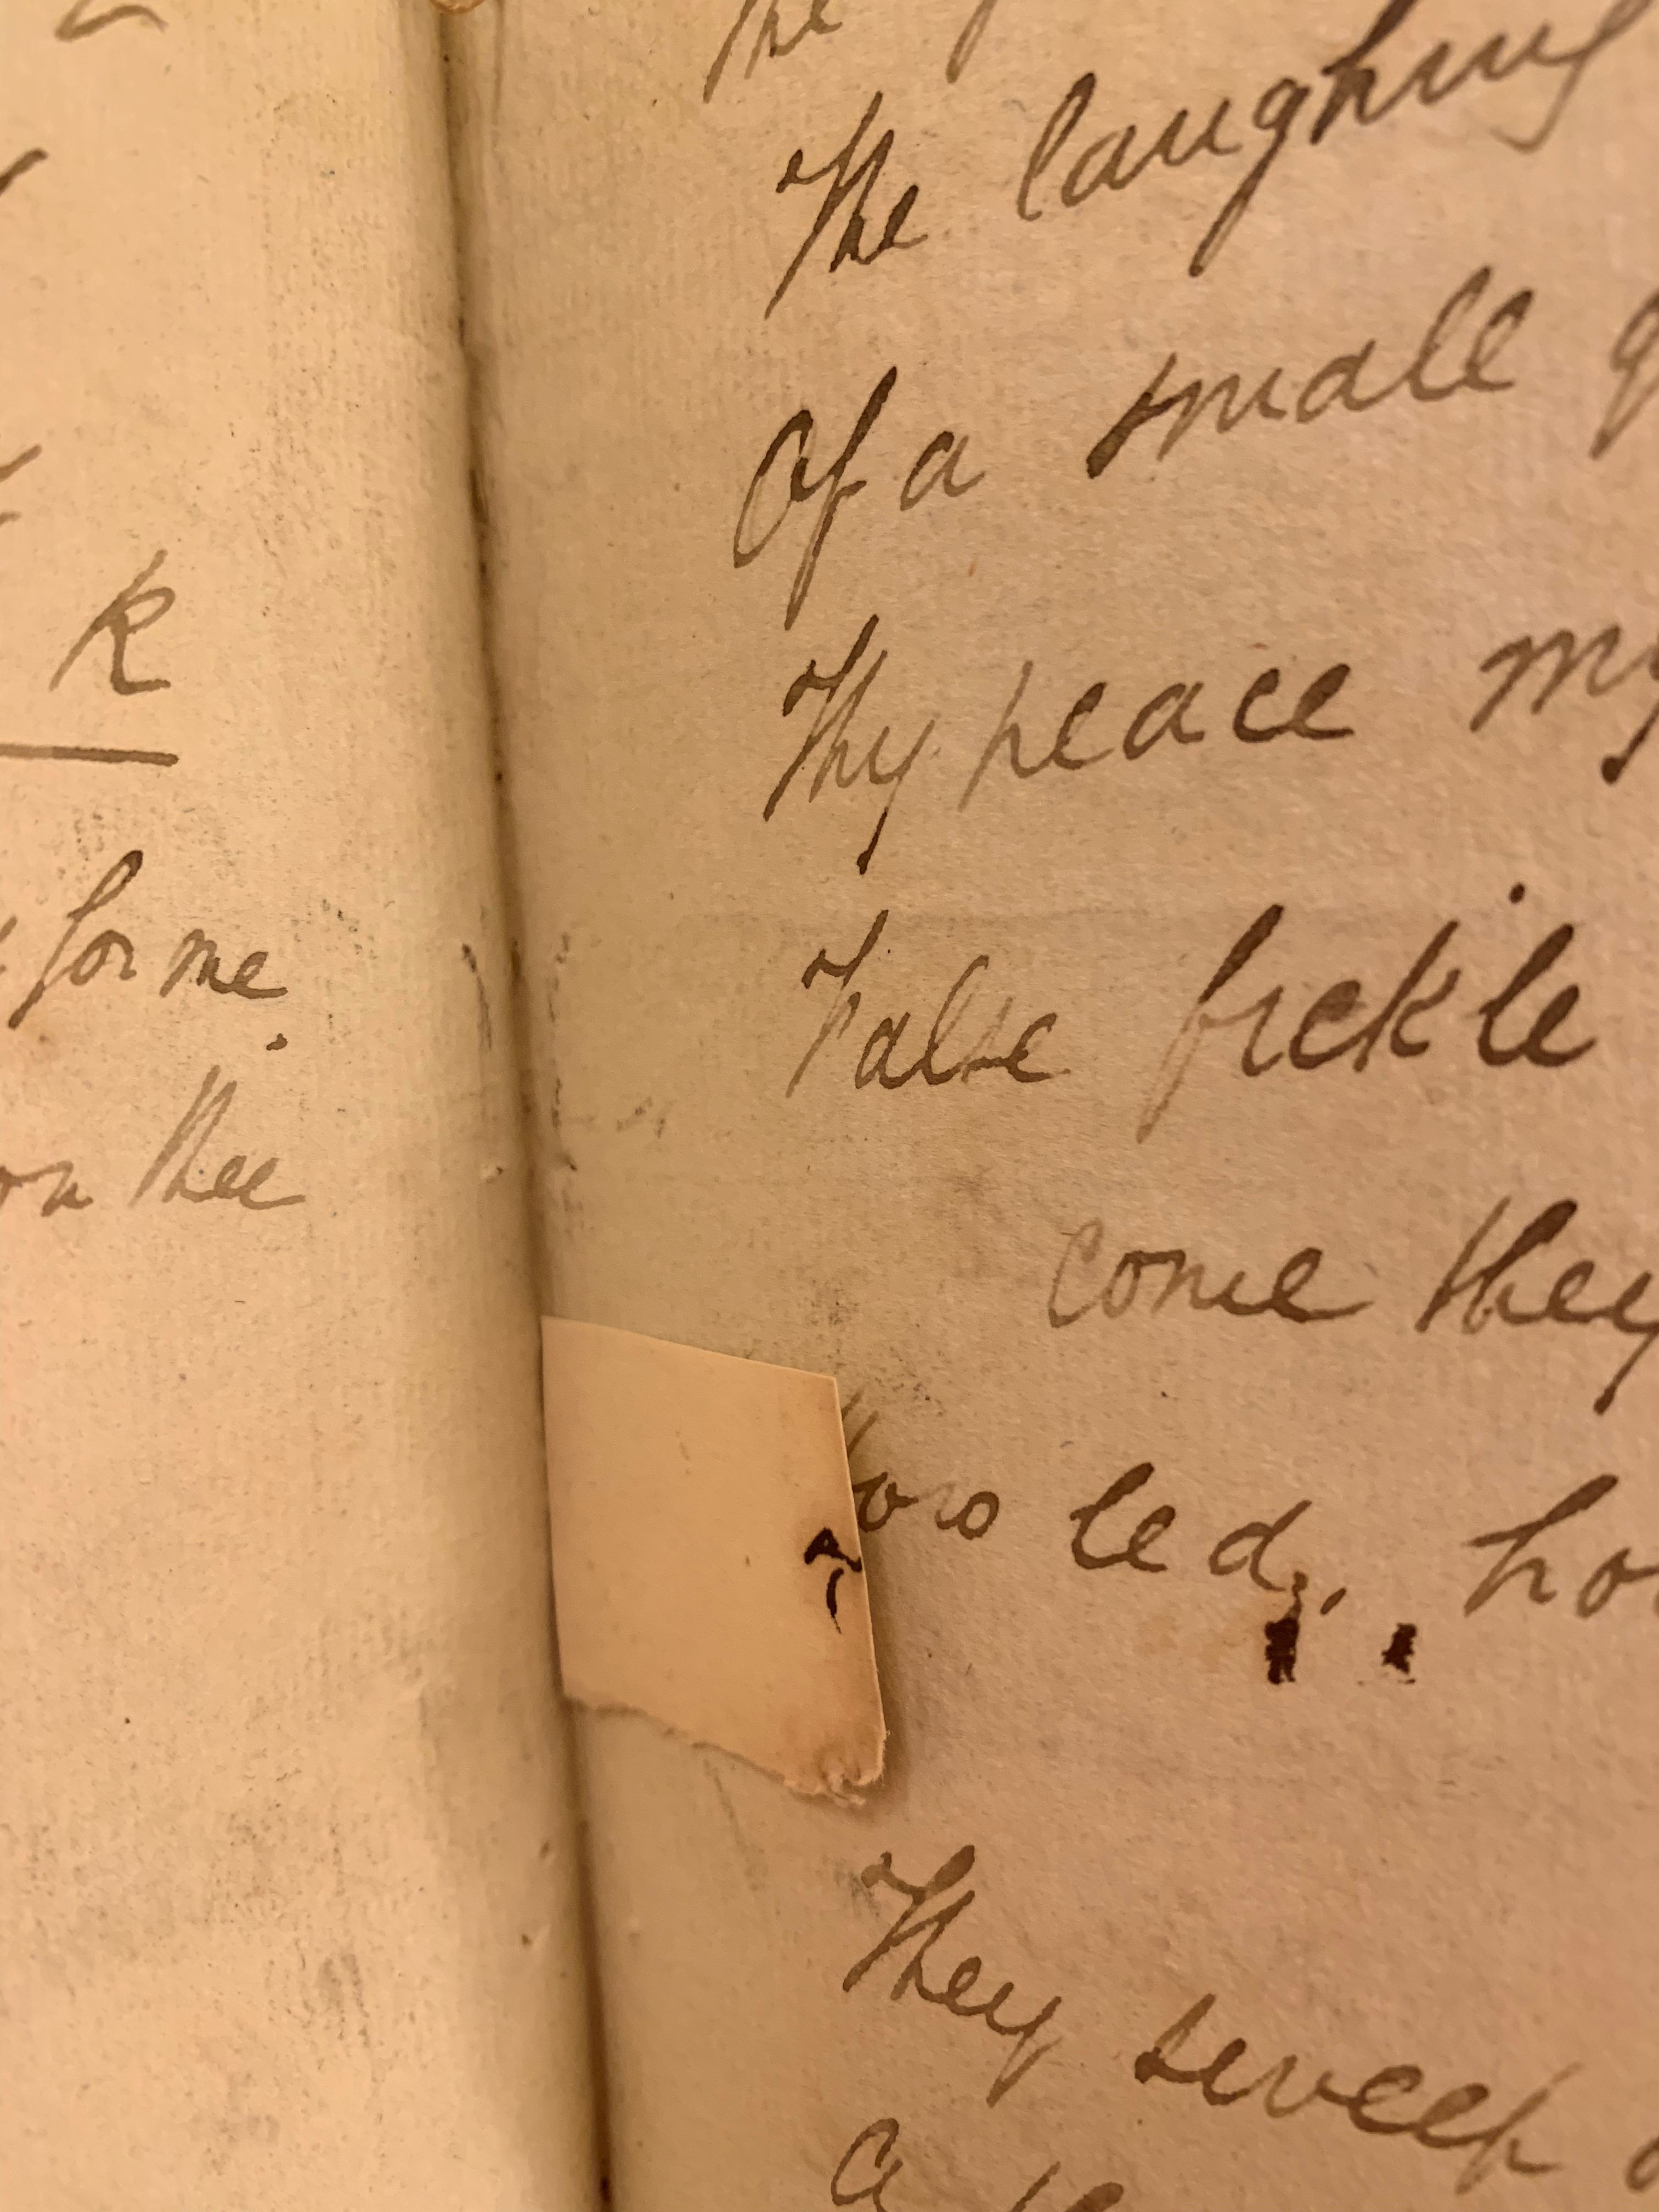 k
for me
on thee
The
The laughing
Of a small
Thy peace my
False fickle
come they
led, ho
They sweep